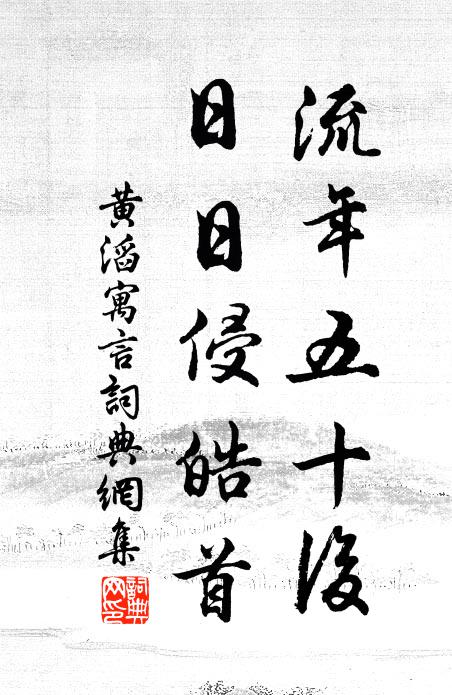 流年五十後
日日侵皓首
黃滔寓言詞典網集
詞典网印